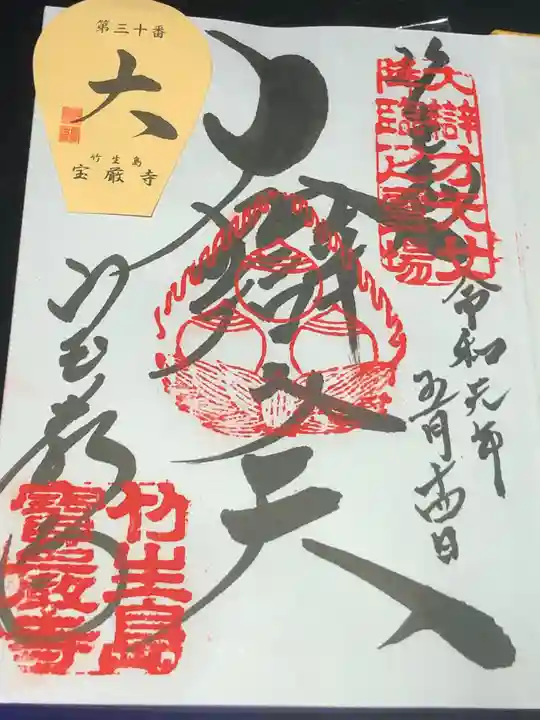 第三十番
大
竹生島
宝厳寺
奉拝
大辯才天女
降臨之霊場
令和元年
五月十四日
大辯才天
宝厳寺
竹生島
寶嚴寺